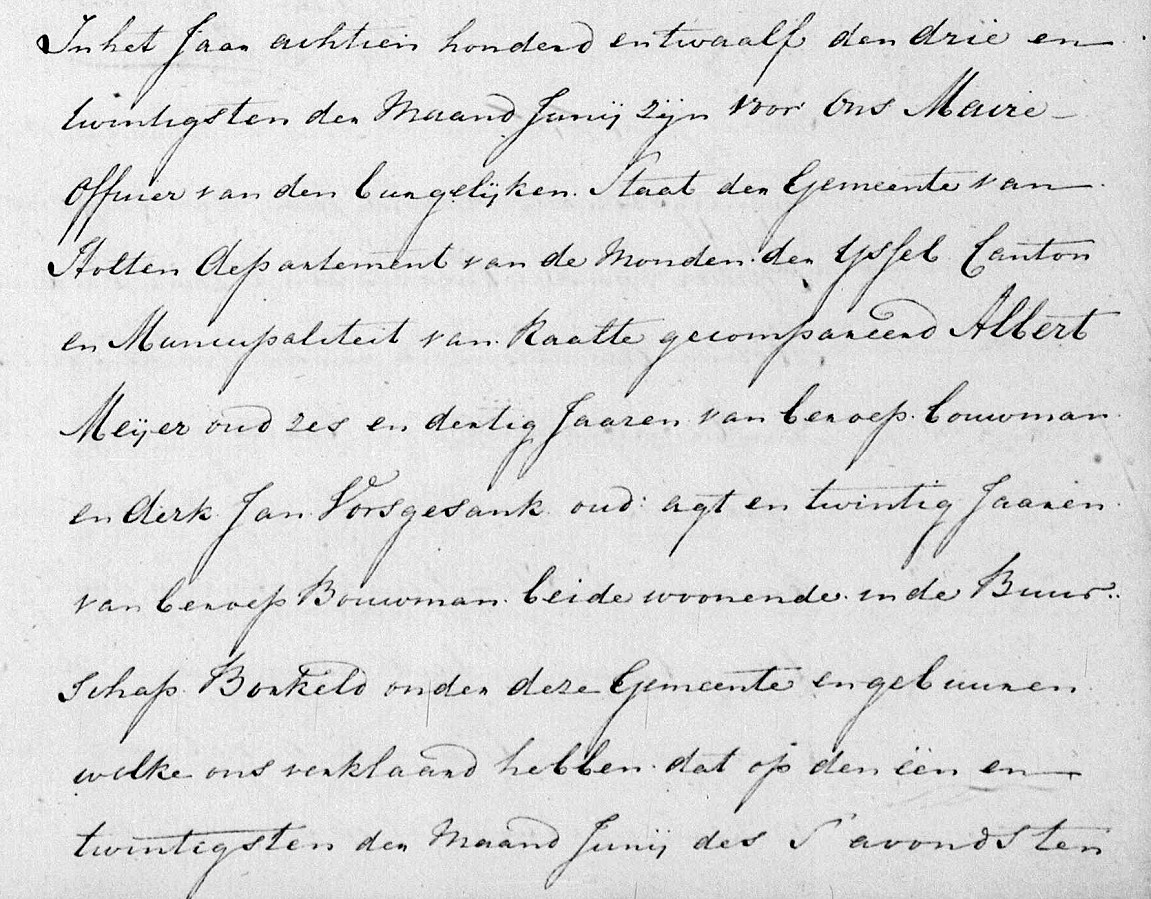 In het Jaar achtien honderd en twaalf den drie en
twintigsten der Maand Junij zijn voor Ons Maire
Officier van den burgelijken Staat der Gemeente van
Holten departement van de Monden der Yssel Canton
en Municipaliteit van Raalte gecompareerd Albert
Meijer oud zes en dertig Jaaren van beroep bouwman
en Derk Jan Vorsgesank oud agt en twintig Jaaren
van beroep Bouwman beide woonende in de Buur:
schap Borkeld onder deze Gemeente en gebuuren
welke ons verklaard hebben dat op den een en
twintigsten der Maand Junij des S'avonds ten